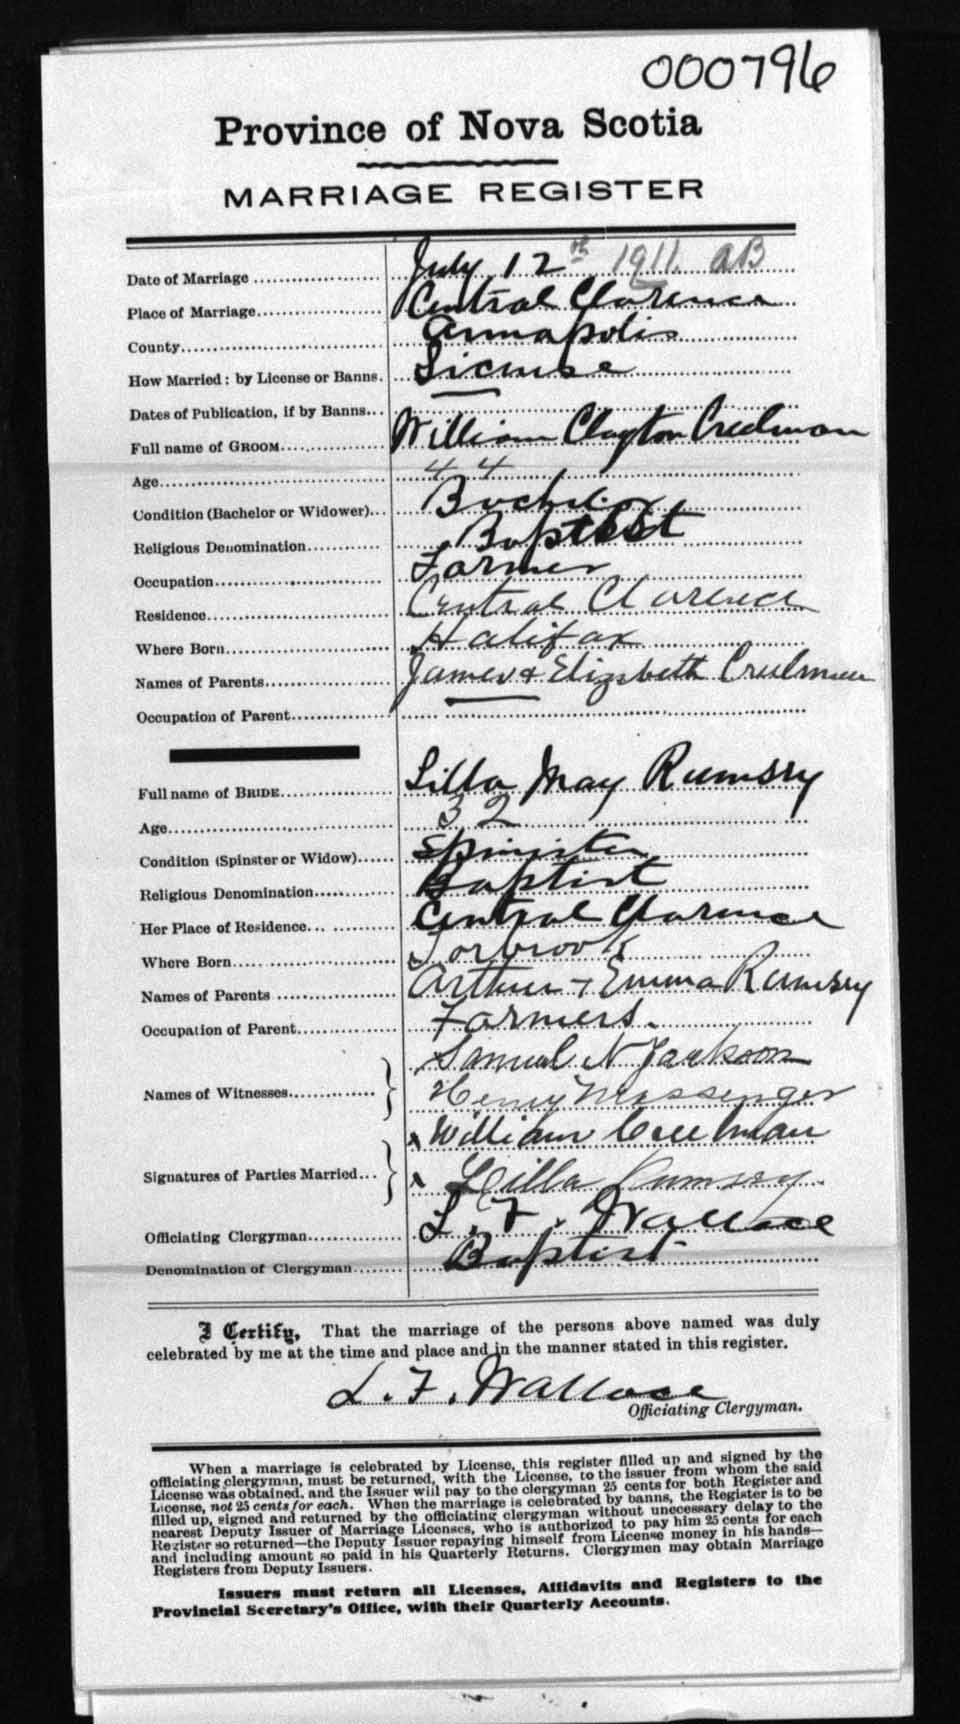 000796
Province of Nova Scotia
MARRIAGE REGISTER
Date of Marriage July 12th 1911. AB
Place of Marriage Central Clarence
County Annapolis
How Married: by License or Banns. License
Dates of Publication, if by Banns...
Full name of GROOM William Clayton Creelman
Age 44
Condition (Bachelor or Widower)... Bachelor
Religious Denomination Baptist
Occupation Farmer
Residence Central Clarence
Where Born Halifax
Names of Parents James & Elizabeth Creelman
Occupation of Parent
Full name of BRIDE Lilla May Rumsey
Age 32
Condition (Spinster or Widow) Spinster
Religious Denomination Baptist
Her Place of Residence Central Clarence
Where Born Torbrook
Names of Parents Arthur + Emma Rumsey
Occupation of Parent Farmers.
Names of Witnesses Samuel N Jackson
Henry Messenger
Signatures of Parties Married... x William Creelman
x Lilla Rumsey.
Officiating Clergyman L. F. Wallace
Denomination of Clergyman Baptist.
I Certify, That the marriage of the persons above named was duly
celebrated by me at the time and place and in the manner stated in this register.
L. F. Wallace
Officiating Clergyman.
When a marriage is celebrated by License, this register filled up and signed by the
officiating clergyman, must be returned, with the License, to the issuer from whom the said
License was obtained, and the Issuer will pay to the clergyman 25 cents for both Register and
License, not 25 cents for each. When the marriage is celebrated by banns, the Register is to be
filled up, signed and returned by the officiating clergyman without unnecessary delay to the
nearest Deputy Issuer of Marriage Licenses, who is authorized to pay him 25 cents for each
Register so returned—the Deputy Issuer repaying himself from License money in his hands—
and including amount so paid in his Quarterly Returns. Clergymen may obtain Marriage
Registers from Deputy Issuers.
Issuers must return all Licenses, Affidavits and Registers to the
Provincial Secretary's Office, with their Quarterly Accounts.